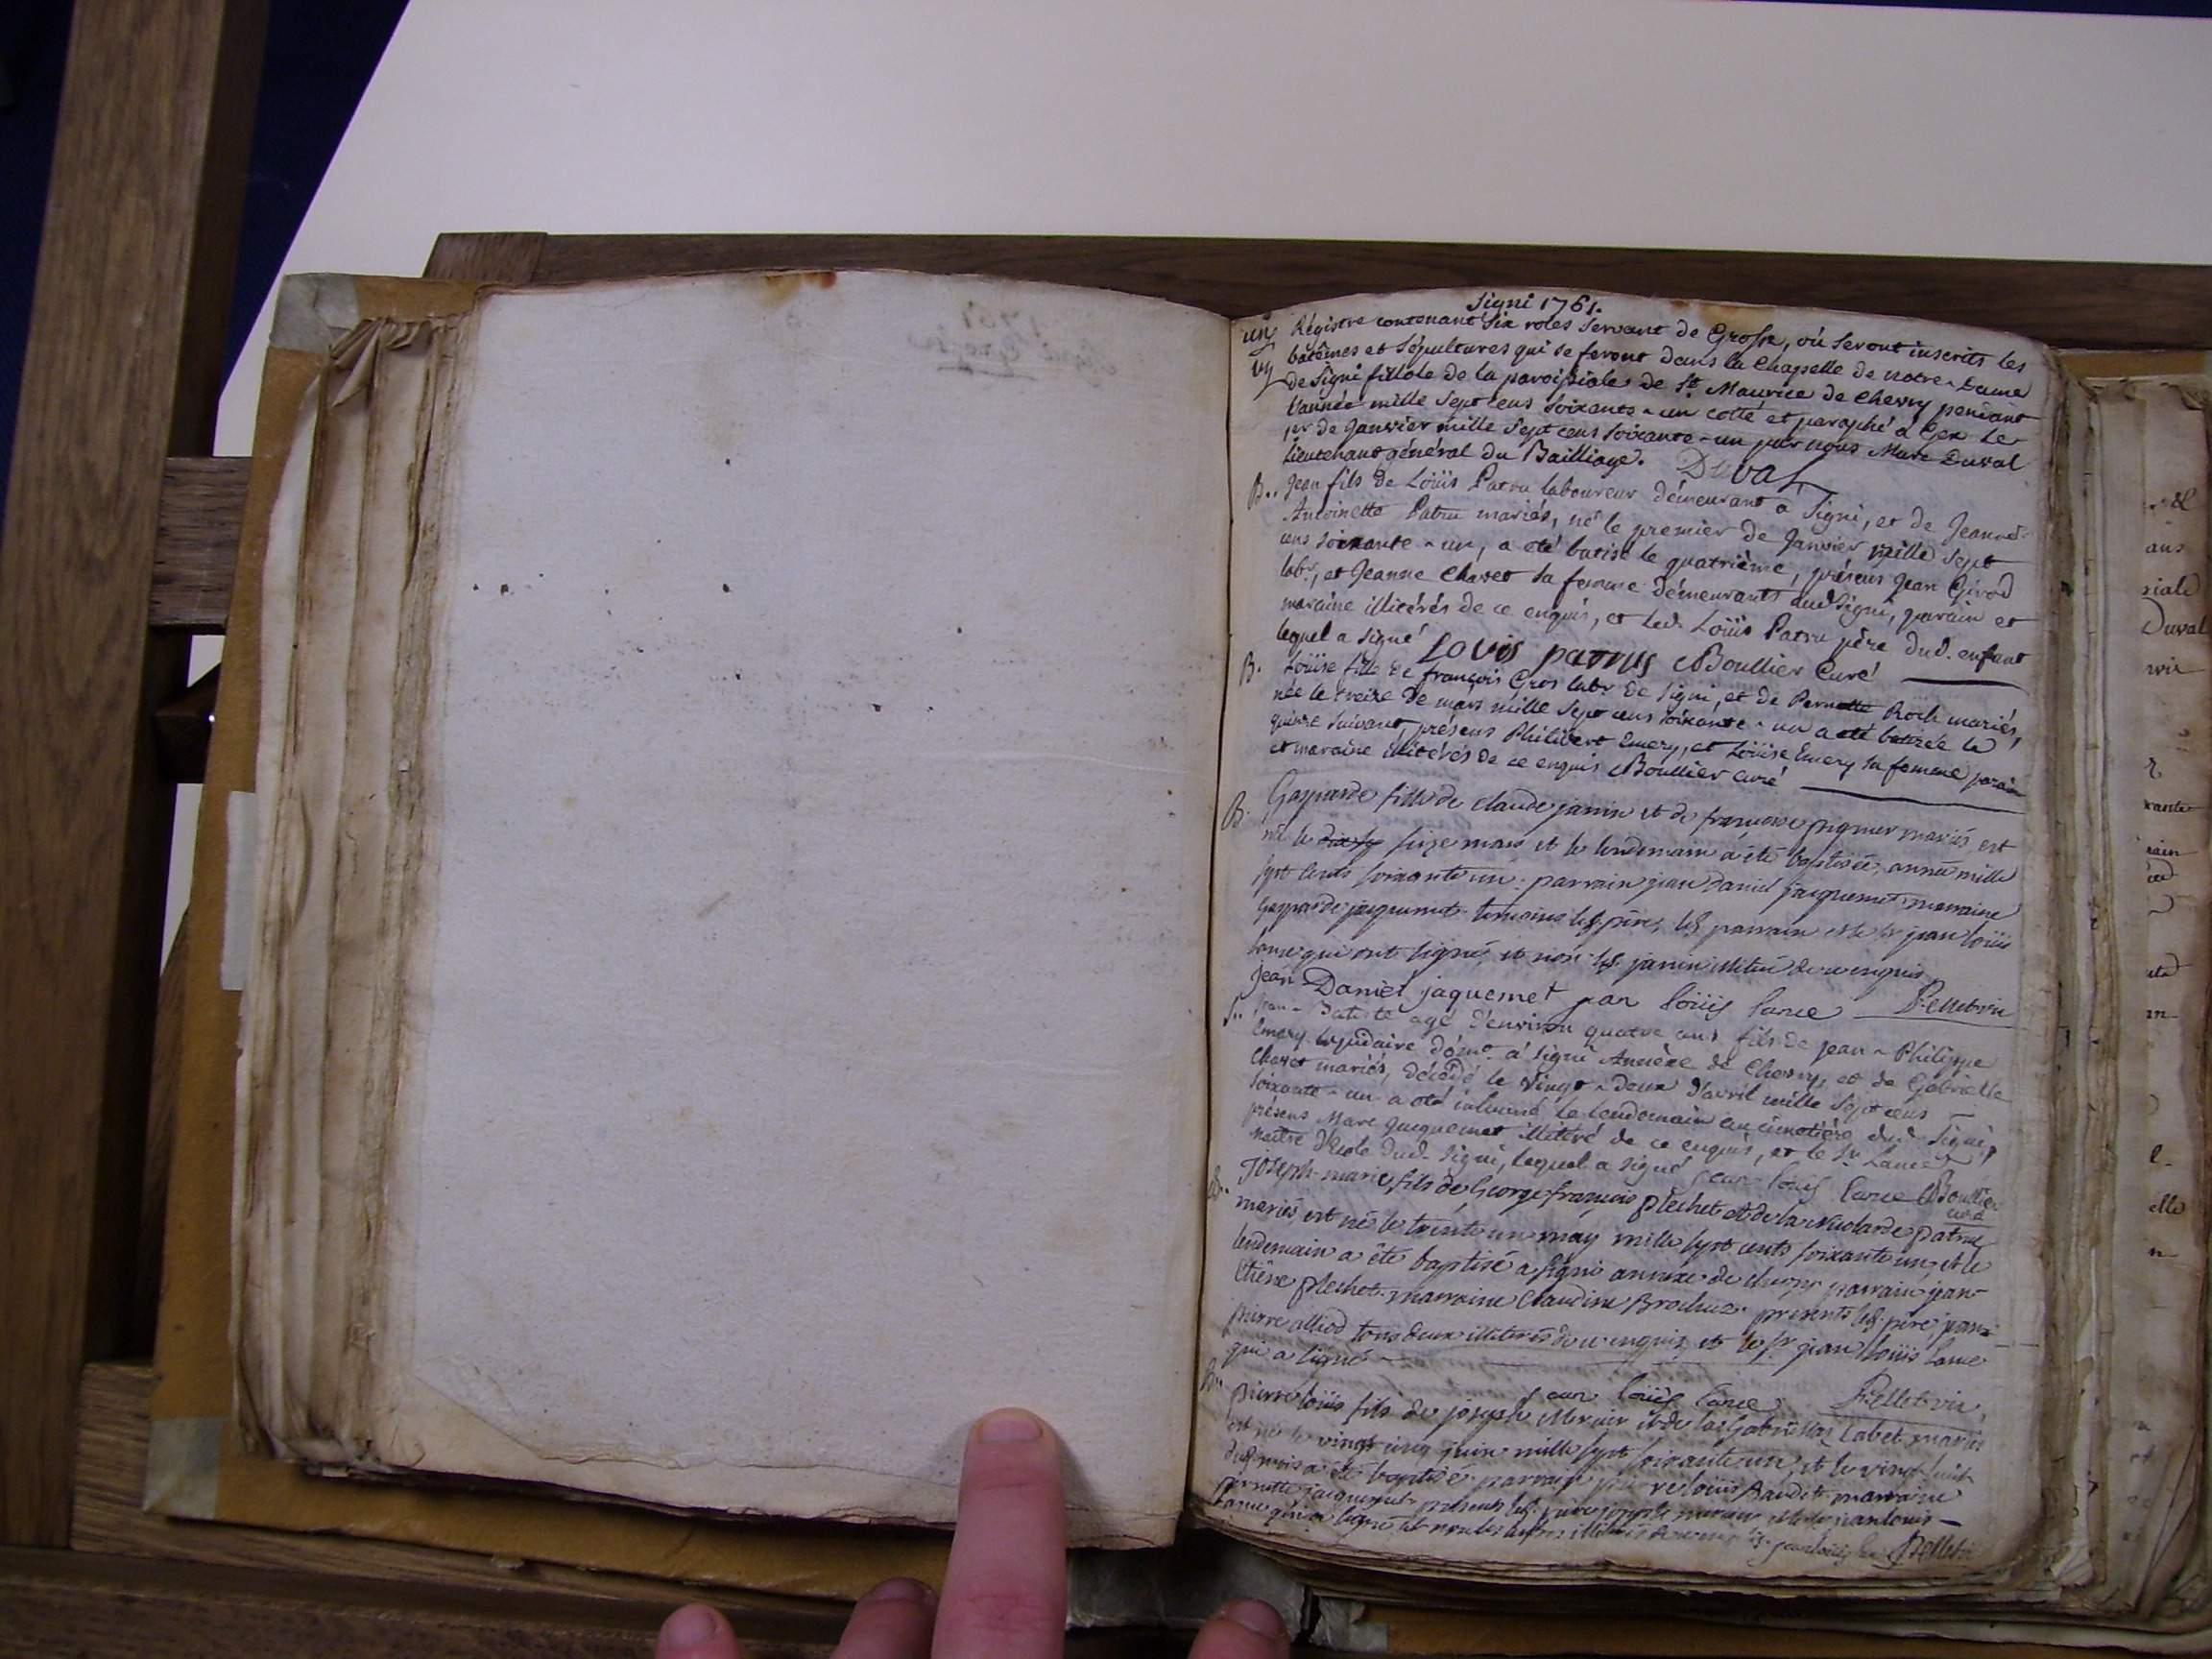 Signi 1761.
un Régistre contenant six roles servant de Grosse, où seront inscrits les
vj batêmes et sépultures qui se feront dans la Chapelle de notre-Dame
de Signi fillole de la paroissiale de St. Maurice de Chevry pendant
l'année mille sept cens soixante-un cotté et paraphé à Gex le
1er de Janvier mille sept cens soixante-un par nous Marc Duval
Lieutenant général du Bailliage. Duval
B.. Jean fils de Loüis Patru laboureur démeurant à Signi, et de Jeanne-
Antoinette Patru mariés, né le premier de Janvier mille sept
cens soixante-un, a été batisé le quatrième, présens Jean Girod
labr., et Jeanne Chavet sa femme démeurants aud Signi, parain et
maraine illitérés de ce enquis, et led. Loüis Patru père dud. enfant
lequel a signé Louis patrus Boullier Curé
B. Loüise fille de françois Gros labr de Signi, et de Pernette Roch mariés,
née le treize de mars mille sept cens soixante-un a été batisée le
quinze suivant, présens Philibert Emery, et Loüise Emery sa femme parain
et maraine illitérés de ce enquis Boullier curé
B. Gasparde fille de claude janin et de francoise mariés est
née le seize mars et le lendemain a été baptisée, année mille
sept cents soixante un: parrain jean Daniel jaquemet marraine
Gasparde jaquemet temoins led. père, led. parrain et le sr jean loüis
lance qui ont signé, et non led. janin illitéré de ce enquis
jean Daniel jaquemet jean loüis lance Pelletvin
S.. Jean-Batiste agé d'environ quatre ans fils de Jean-Philippe
Emery lapidaire démt. à Signi Annèxe de Chevry, et de Gabrielle
Chavet mariés, décédé le vingt-deux d'avril mille sept cens
soixante-un a été inhumé le lendemain au cimetière dud. Signi,
présens Marc Jacquemet illitéré de ce enquis, et le Sr. Lance
maître d'école dud. Signi, lequel a signé jean louis lance Boullier
curé
B.. Joseph-marie fils de George françois plechet et de la Nicolarde patru
mariés est né le trente un may mille sept cents soixante un, et le
lendemain a été baptisé a signi annexe de chevry parrain jean-
Etiène plechet. marraine Claudine Brochuz. presents led. père jean
pierre alliod tous deux illiterés de ce enquis, et le sr. jean loüis lance
qui a signé
jean loüis lance Pelletvin
B.. pierre loüis fils de joseph Mercier et de la Gabriëlla Labet mariés
est né le vingt cinq juin mille sept soixante un, et le vingt huit
dud. mois a été baptisé. parrain pierre loüis Baudet marraine
pernette jacquemet presents led. père joseph mercier et le jean louis
lance qui a signé et non les autres illiterés de ce enquis. jean loüis lance Pelletvin